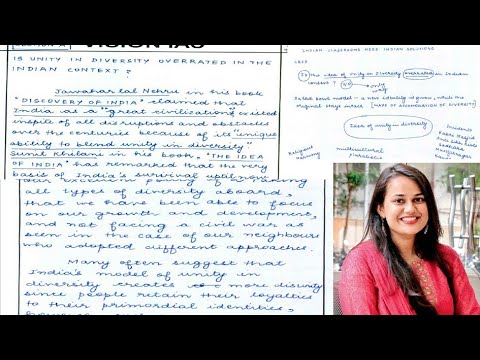 SECTION-A
VISION IAS
IS UNITY IN DIVERSITY OVERRATED IN THE
INDIAN CONTEXT?
Jawahar lal Nehru in his book
"DISCOVERY OF INDIA" claimed that
India as a "great civilization" existed
inspite of all disruptions and obstacles
over the centuries because of its "unique
ability to blend unity in diversity"
Sunil Khilani in his book, "THE IDEA
OF INDIA" has remarked that the very
basis of India's survival uptil now
all types of diversity aboard,
that we have been able to focus
on our growth and development,
and not facing a civil war as
seen in the case of our neighbours
who adopted different approaches.
Many often suggest that
India's model of unity in
diversity creates more disunity
since people retain their loyalties
to their primordial identities,
INDIAN CLASSROOMS NEED INDIAN SOLUTIONS
Is the idea of unity in diversity overrated in Indian
context?
Salad bowl model - a new identity is given, while the
original stays intact
Idea of unity in diversity
Religious
Harmony
multicultural